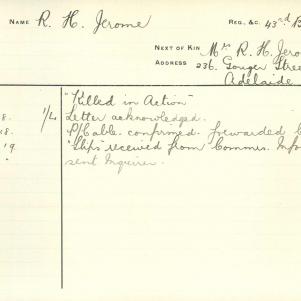 NAME R. H. Jerome REG., &C. 43rd B
NEXT OF KIN Mrs R. H. Jero
ADDRESS 236. Gouger Stree
Adelaide
"Killed in Action"
8. 1/4 Letter acknowledged.
18. P/Cable. confirmed. forwarded
19 "Slips" received from Commis. Info
" sent Inquirer.